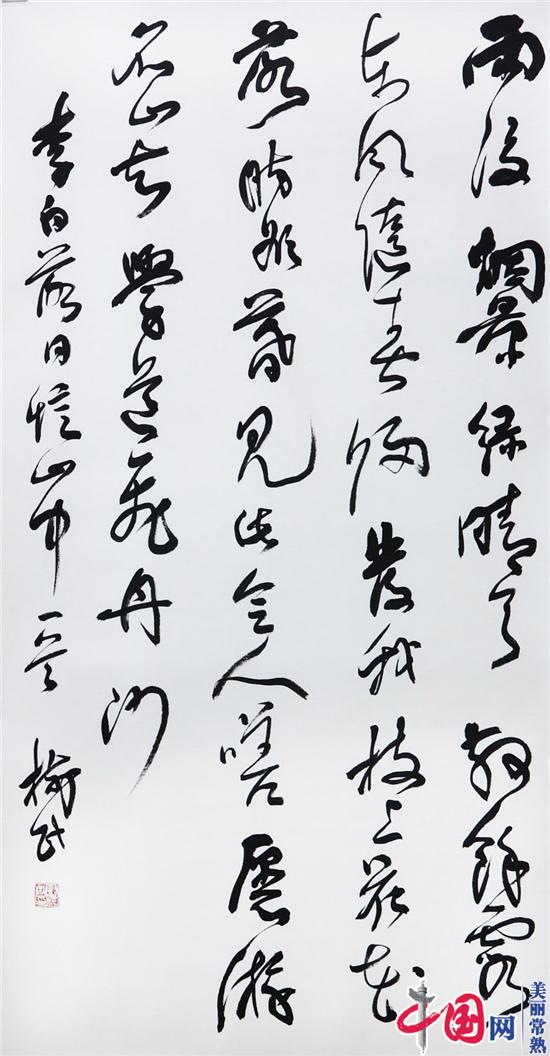 雨後烟景绿晴天散餘霞
東風隨春歸發我枝上花花
落時欲暮見此令人嗟愿游
名山去學道飛丹沙
李白落日憶山中一首
中国网
美丽常熟